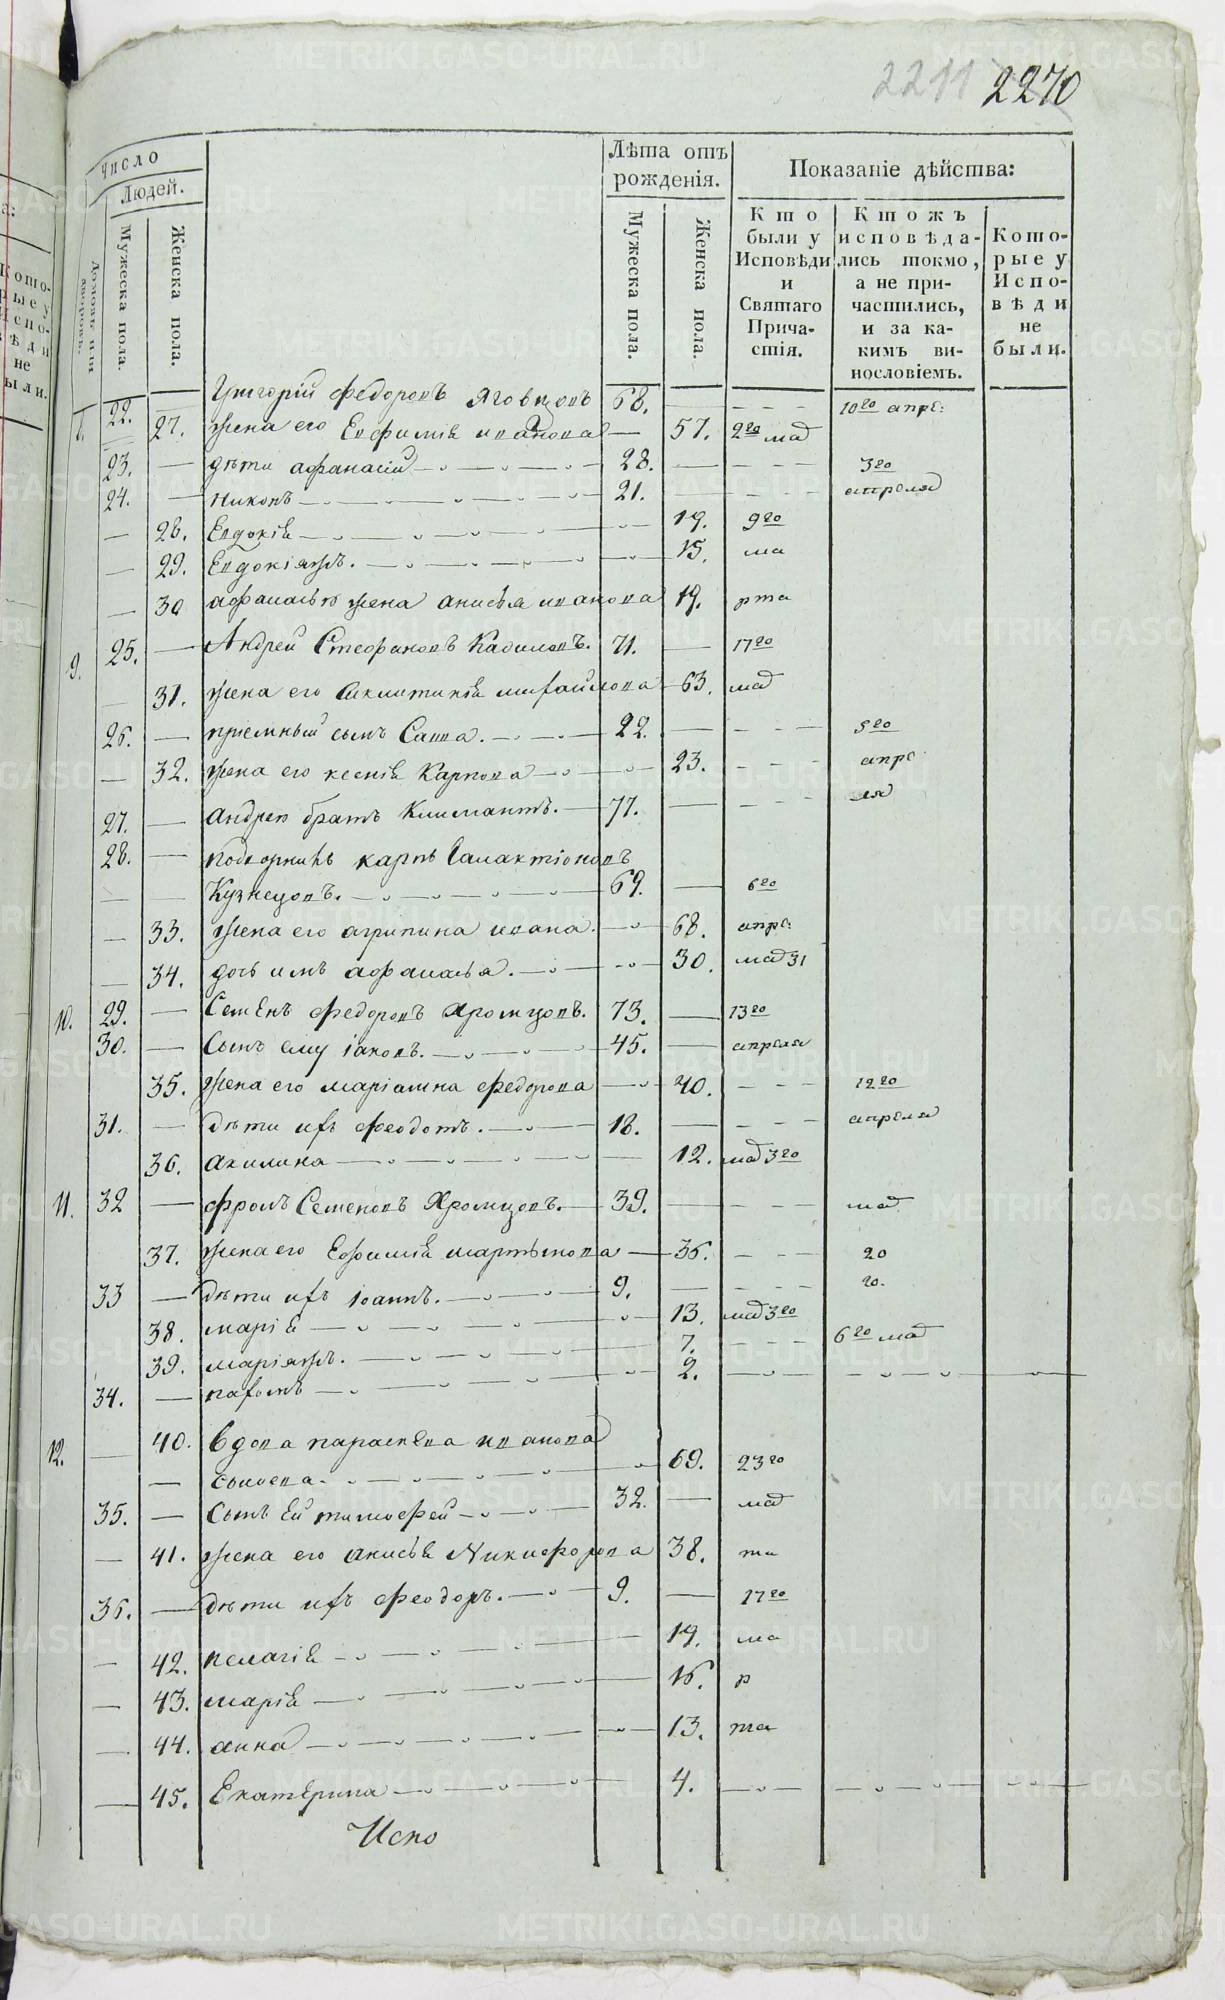 2211 2270
Число
Людей.
Домовъ или дворовъ.
Мужеска пола.
Женска пола.
Лѣта отъ рожденія.
Мужеска пола.
Женска пола.
Показаніе дѣйства:
Кто были у Исповѣди и Святаго Причастія.
Ктожъ исповѣдались токмо, а не причастились, и за какимъ винословіемъ.
Которые у Исповѣди не были.
22. Григорій Федоровъ 68. 10го апре:
27. жена его Евфимія иванова 57. 2го мая
23. дѣти афанасій 28. 3го
24. никонъ 21. апреля
28. Евдокія 19. 9го
29. Евдокіяжъ. 15. ма
30 афанасья жена анисья иванова 19. рта
9. 25. Андрей Стефановъ 71. 17го
31. жена его михайлова 63. мая
26. пріемный сынъ Савва. 22. 5го
32. жена его ксенія Карпова 23. апре
27. андрея братъ Климантъ. 77. ля
28. карпъ Галактіоновъ
Кузнецовъ. 69. 6го
33. жена его агрипина ивана. 68. апре:
34. дочь имъ афанасья. 30. мая 31
10. 29. Семенъ Федоровъ Хромцовъ. 73. 13го
30. Сынъ ему іаковъ. 45. апреля
35. жена его маріамна федорова 40. 12го
31. дѣти ихъ феодотъ. 18. апреля
36. акилина 12. мая 3го
11. 32 фролъ Семеновъ Хромцовъ. 39. мая
37. жена его Ефимія мартынова 36. 20
33 дѣти ихъ іоаннъ. 9. го.
38. марія 13. мая 3го
39. маріяжъ. 7. 6го мая
34. пахомъ 2.
12. 40. вдова параскева иванова
сысоева. 69. 23го
35. Сынъ Ей тимофей 32. мая
41. жена его анисья Никифорова 38. ма
36. дѣти ихъ феодоръ. 9. 17го
42. пелагія 19. ма
43. марія 16. р
44. анна 13. та
45. Екатерина 4.
Испо
METRIKI.GASO-URAL.RU